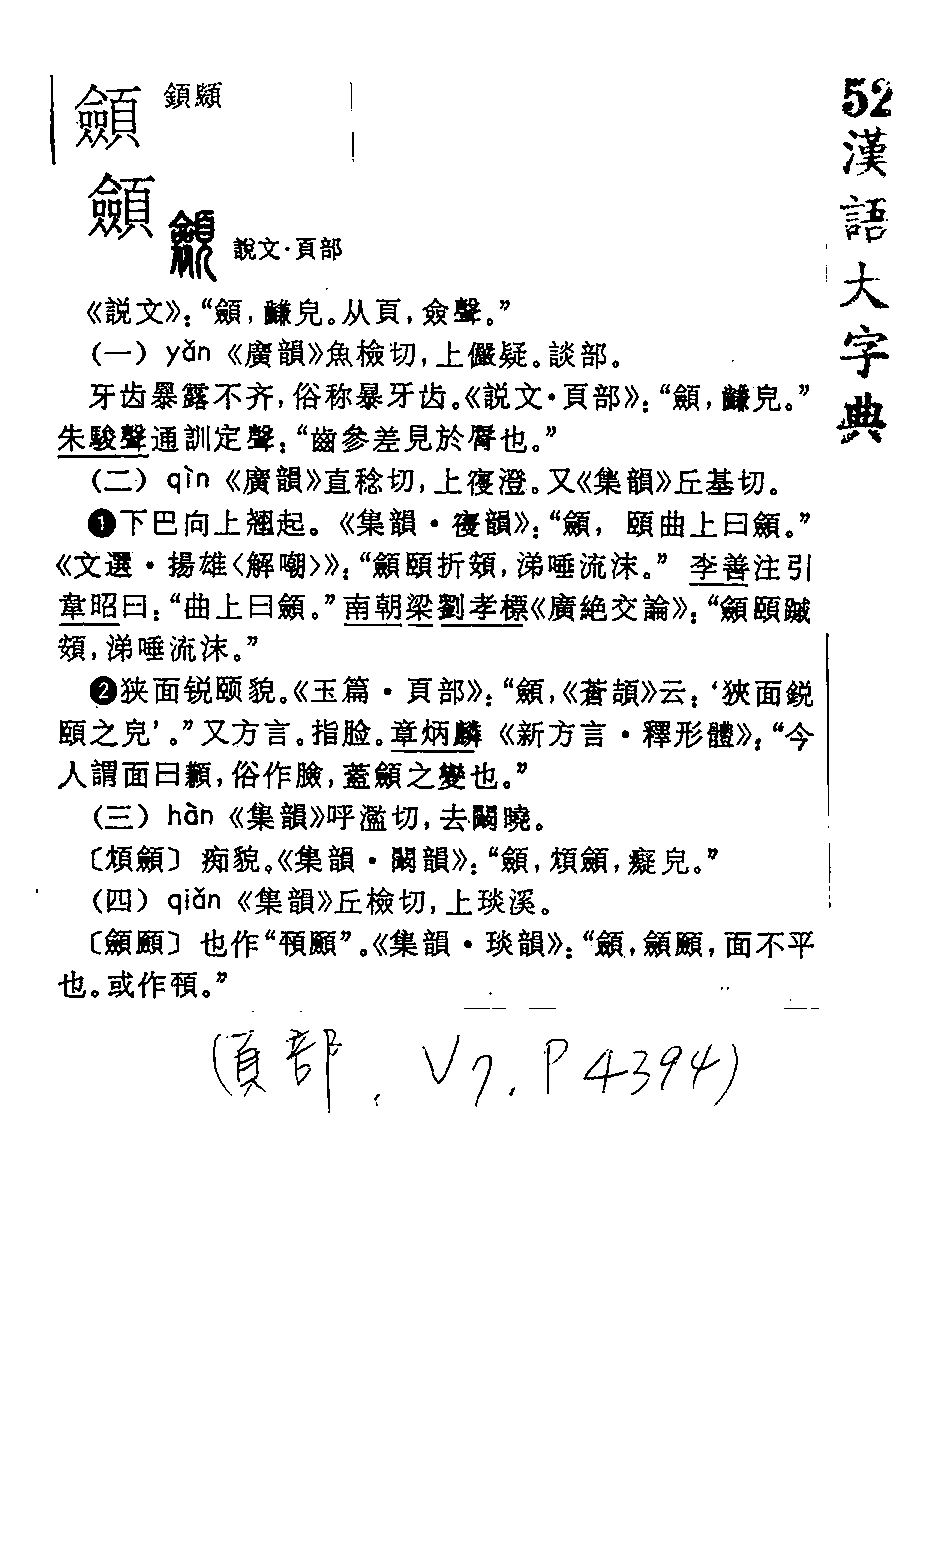 52
漢語大字典
顩 顉顤
顩
説文·頁部
《説文》：“顩，𪙊皃。从頁，僉聲。”
（一）yǎn《廣韻》魚檢切，上儼疑。談部。
牙齿暴露不齐，俗称暴牙齿。《説文·頁部》：“顩，𪙊皃。”
朱駿聲通訓定聲：“齒參差見於脣也。”
（二）qìn《廣韻》直稔切，上寑澄。又《集韻》丘甚切。
❶下巴向上翘起。《集韻·寑韻》：“顩，頤曲上曰顩。”
《文選·揚雄〈解嘲〉》：“顩頤折頞，涕唾流沫。” 李善注引
韋昭曰：“曲上曰顩。”南朝梁劉孝標《廣絶交論》：“顩頤蹙
頞，涕唾流沫。”
❷狭面锐颐貌。《玉篇·頁部》：“顩，《蒼頡》云：‘狹面鋭
頤之皃’。”又方言。指脸。章炳麟《新方言·釋形體》：“今
人謂面曰顩，俗作臉，蓋顩之變也。”
（三）hàn《集韻》呼濫切，去闞曉。
〔煩顩〕痴貌。《集韻·闞韻》：“顩，煩顩，癡皃。”
（四）qiǎn《集韻》丘檢切，上琰溪。
〔顩願〕也作“䫡願”。《集韻·琰韻》：“顩，顩願，面不平
也。或作䫡。”
（頁部，V7，P4394）